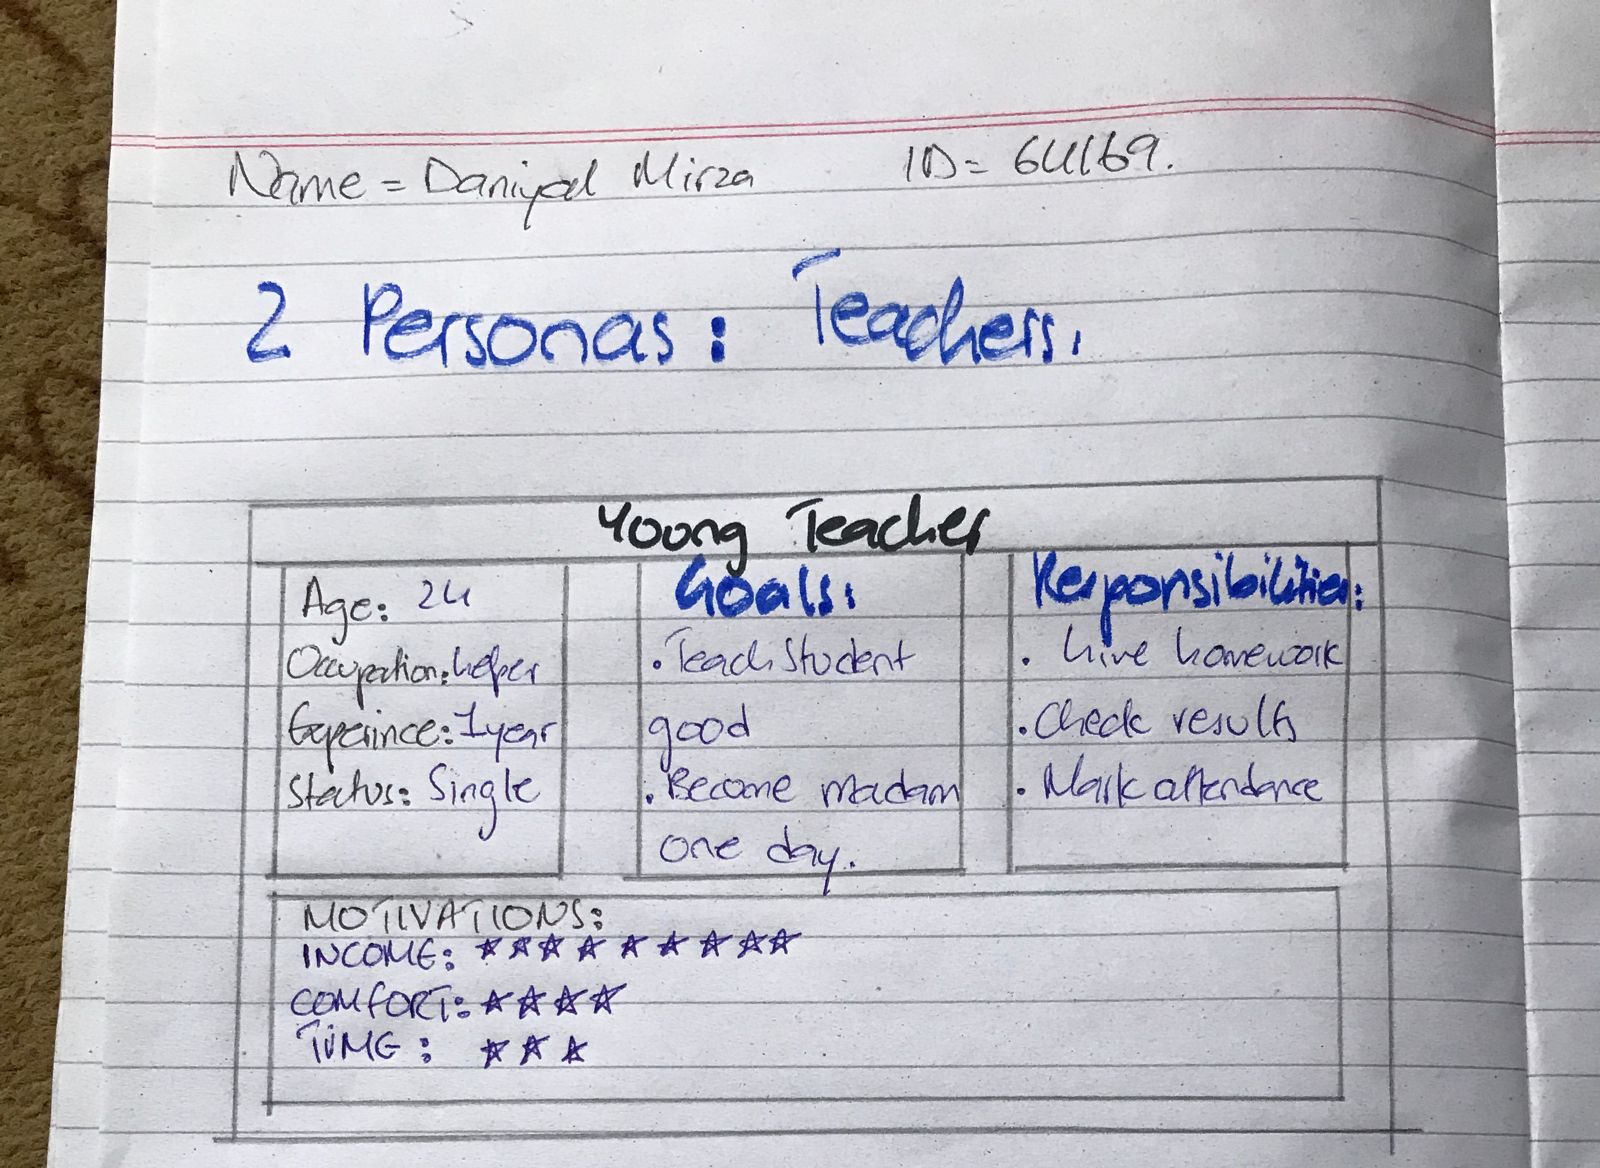 Name = Daniyal Mirza ID = 64169.
2 Personas: Teachers.
Young Teacher
Age: 24
Occupation: helper
Experince: 1 year
Status: Single
Goals:
. Teach Student
good
. Become madam
one day.
Responsibilities:
. Give homework
. Check results
. Mark attendance
MOTIVATIONS:
INCOME: ★★★★★★★★★
COMFORT: ★★★★
TIME: ★★★